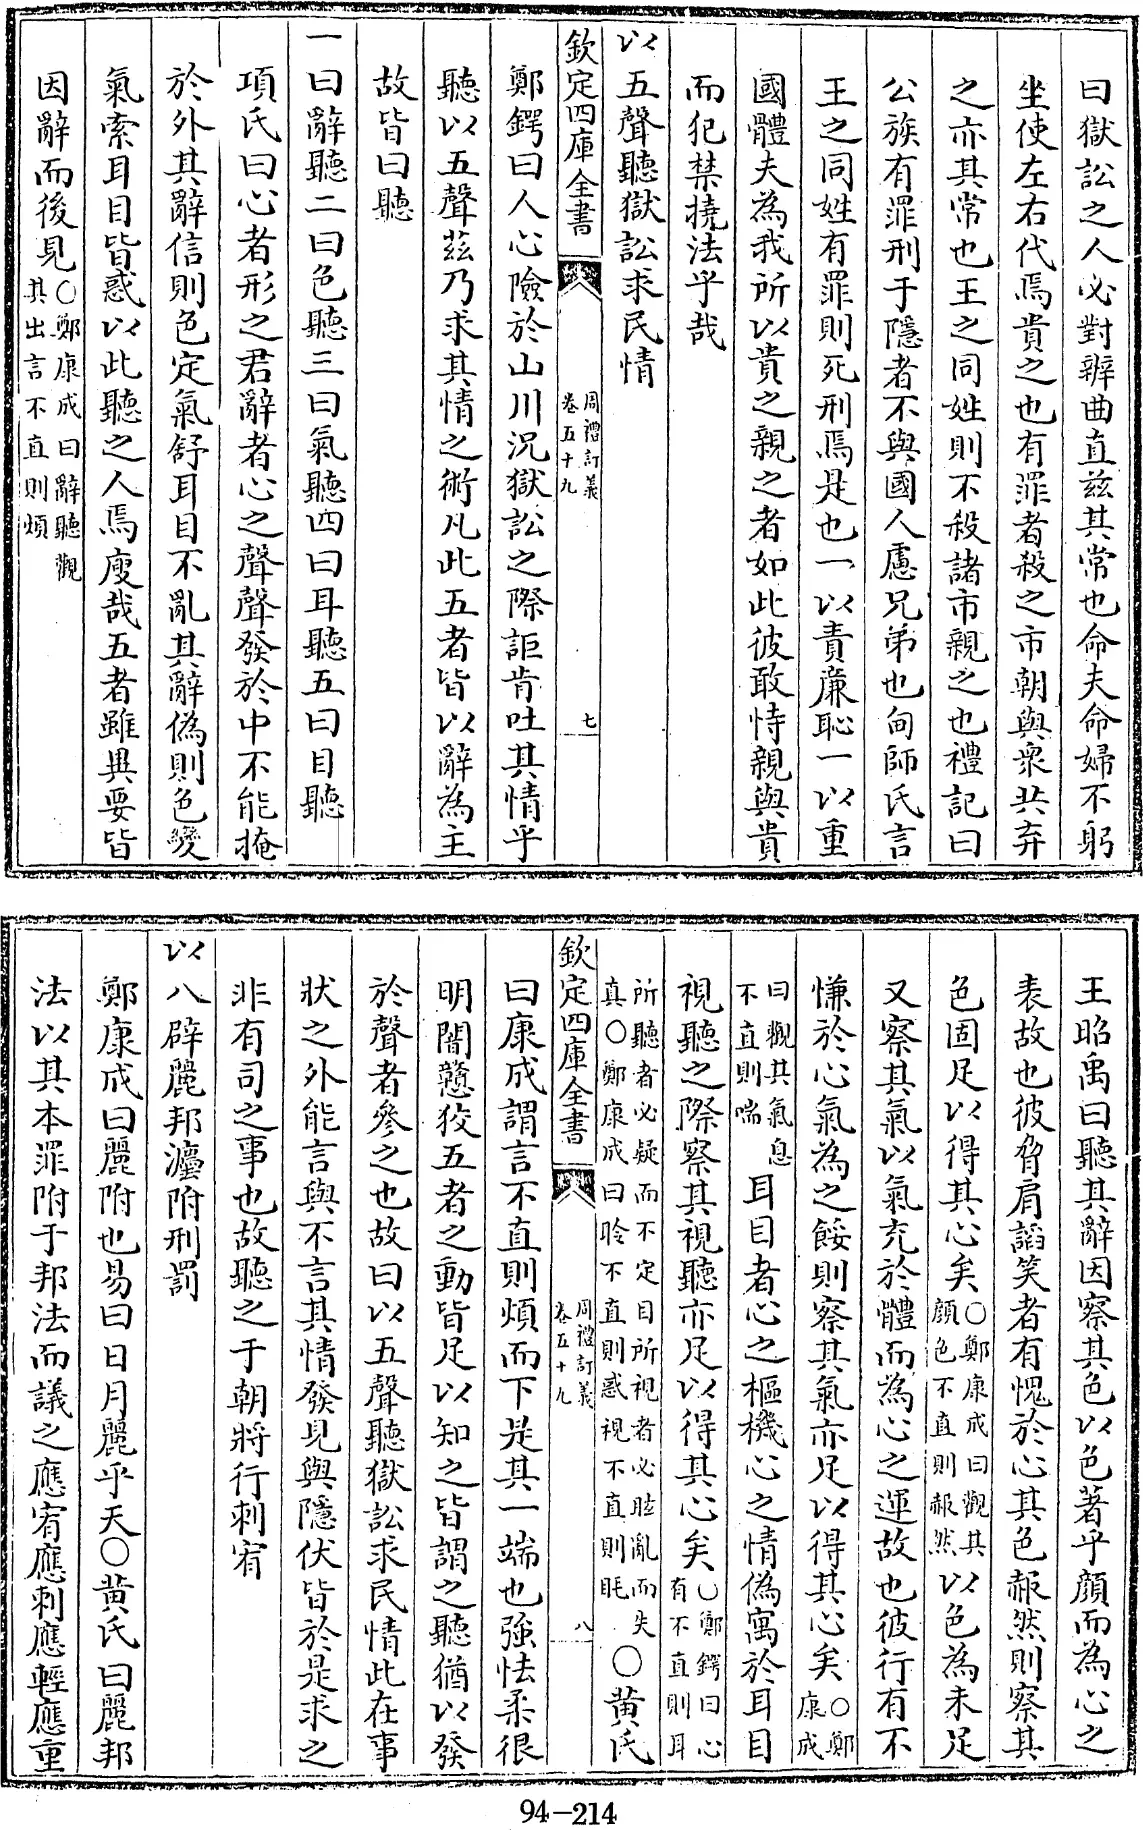 曰獄訟之人必對辨曲直兹其常也命夫命婦不躬
坐使左右代焉貴之也有罪者殺之市朝與衆共弃
之亦其常也王之同姓則不殺諸市親之也禮記曰
公族有罪刑于隱者不與國人慮兄弟也甸師氏言
王之同姓有罪則死刑焉是也一以責廉恥一以重
國體夫為我所以貴之親之者如此彼敢恃親與貴
而犯禁撓法乎哉
以五聲聽獄訟求民情
欽定四庫全書
周禮訂義
卷五十九
七
鄭鍔曰人心險於山川況獄訟之際詎肯吐其情乎
聽以五聲兹乃求其情之術凡此五者皆以辭為主
故皆曰聽
一曰辭聽二曰色聽三曰氣聽四曰耳聽五曰目聽
項氏曰心者形之君辭者心之聲聲發於中不能掩
於外其辭信則色定氣舒耳目不亂其辭偽則色變
氣索耳目皆惑以此聽之人焉廋哉五者雖異要皆
因辭而後見○鄭康成曰辭聽觀
其出言不直則煩
王昭禹曰聽其辭因察其色以色著乎顔而為心之
表故也彼脅肩謟笑者有愧於心其色赧然則察其
色固足以得其心矣○鄭康成曰觀其
顔色不直則赧然以色為未足
又察其氣以氣充於體而為心之運故也彼行有不
慊於心氣為之餒則察其氣亦足以得其心矣○鄭
康成
曰觀其氣息
不直則喘耳目者心之樞機心之情偽寓於耳目
視聽之際察其視聽亦足以得其心矣○鄭鍔曰心
有不直則耳
所聽者必疑而不定目所視者必眊亂而失
真○鄭康成曰聆不直則惑視不直則眊○黄氏
欽定四庫全書
周禮訂義
卷五十九
八
曰康成謂言不直則煩而下是其一端也強怯柔很
明闇戇狡五者之動皆足以知之皆謂之聽猶以發
於聲者參之也故曰以五聲聽獄訟求民情此在事
狀之外能言與不言其情發見與隱伏皆於是求之
非有司之事也故聽之于朝將行刺宥
以八辟麗邦灋附刑罰
鄭康成曰麗附也易曰日月麗乎天○黄氏曰麗邦
法以其本罪附于邦法而議之應宥應刺應輕應重
94-214